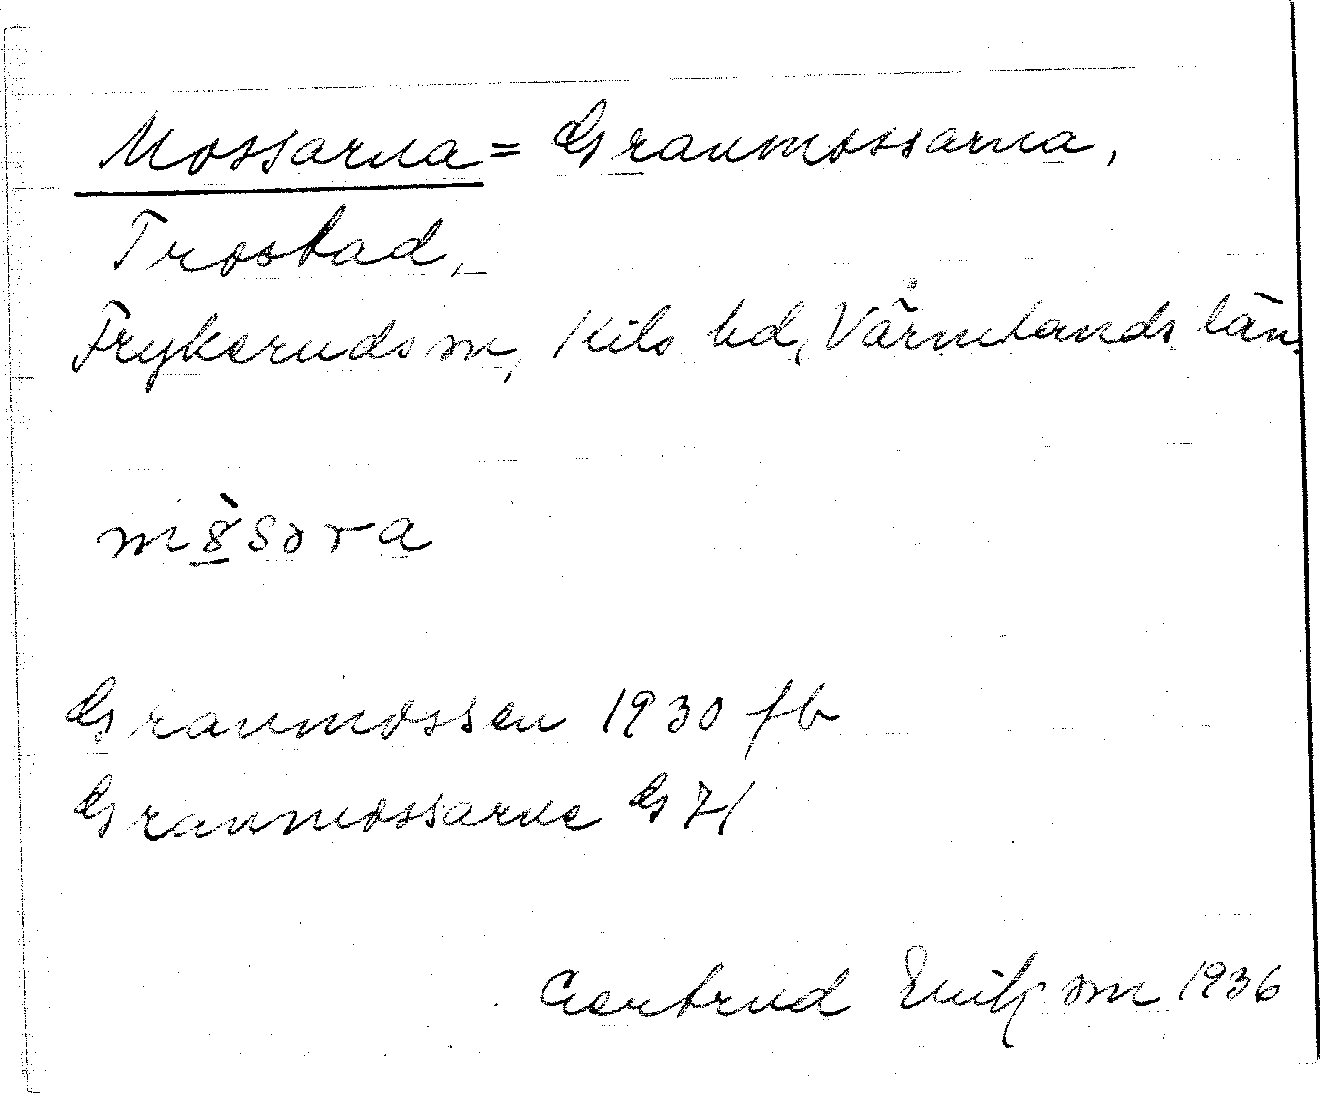 Mossarna = Granmossarna,
Trostad,
Frykeruds sn, Kils hd, Värmlands län.
Granmossen 1930 fb
Granmossarne GK
Gertrud Eriksson 1936